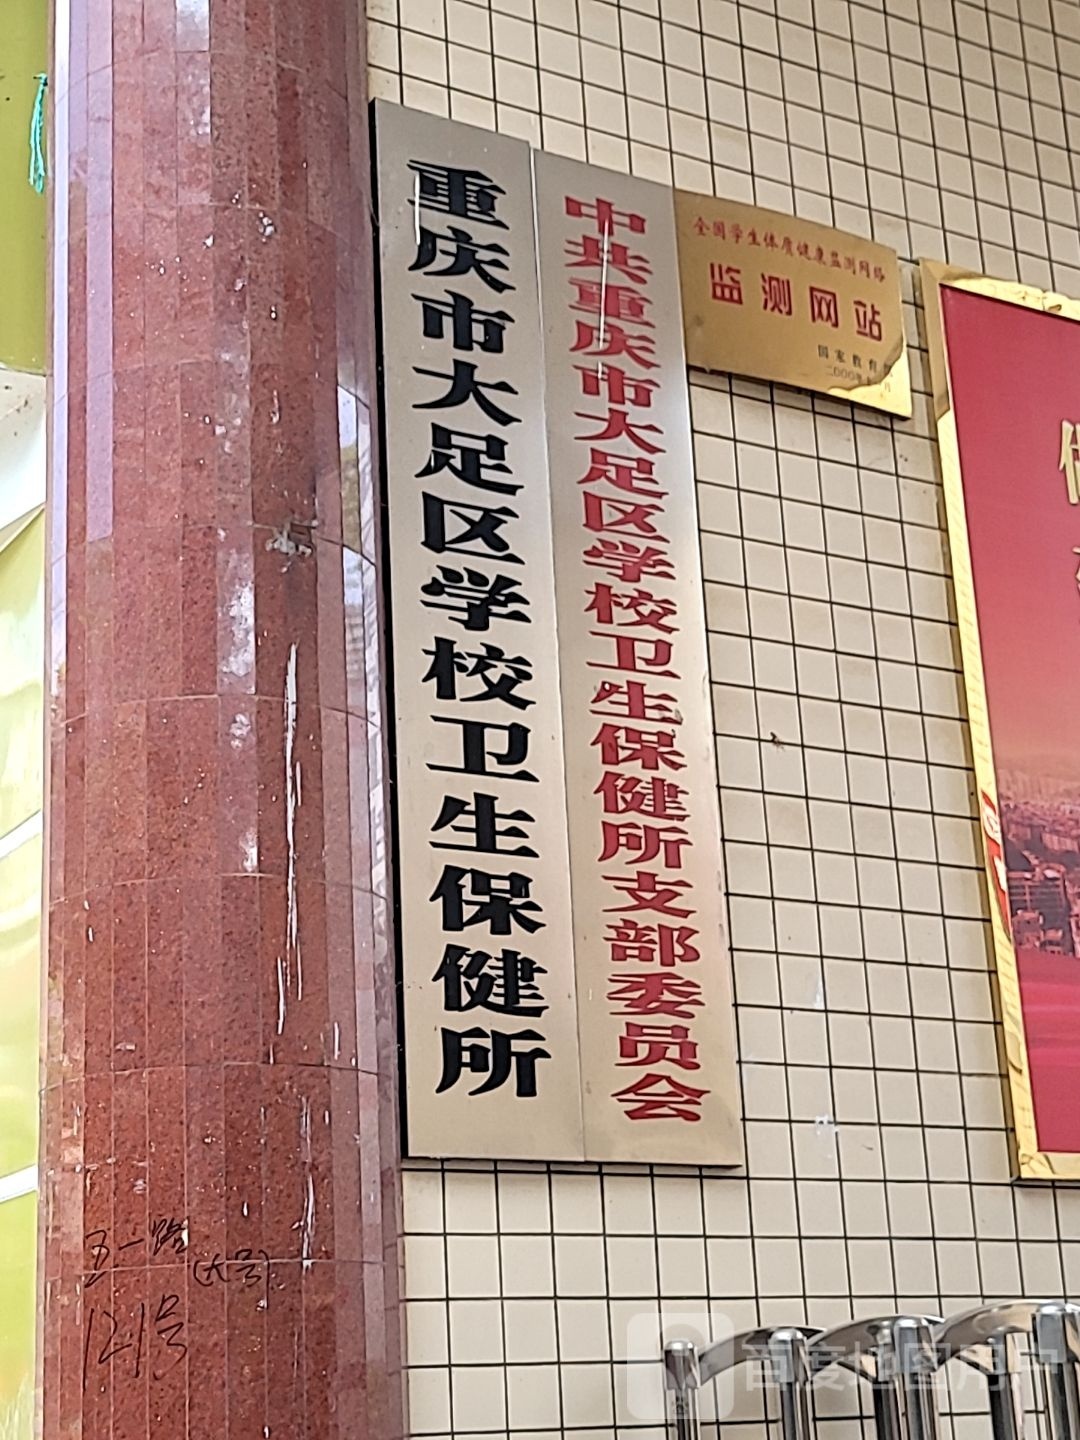 重庆市大足区学校卫生保健所
中共重庆市大足区学校卫生保健所支部委员会
全国学生体质健康监测网络
监测网站
国家教育
二000年 月
五一路
(大号)
121号
百度地图用户